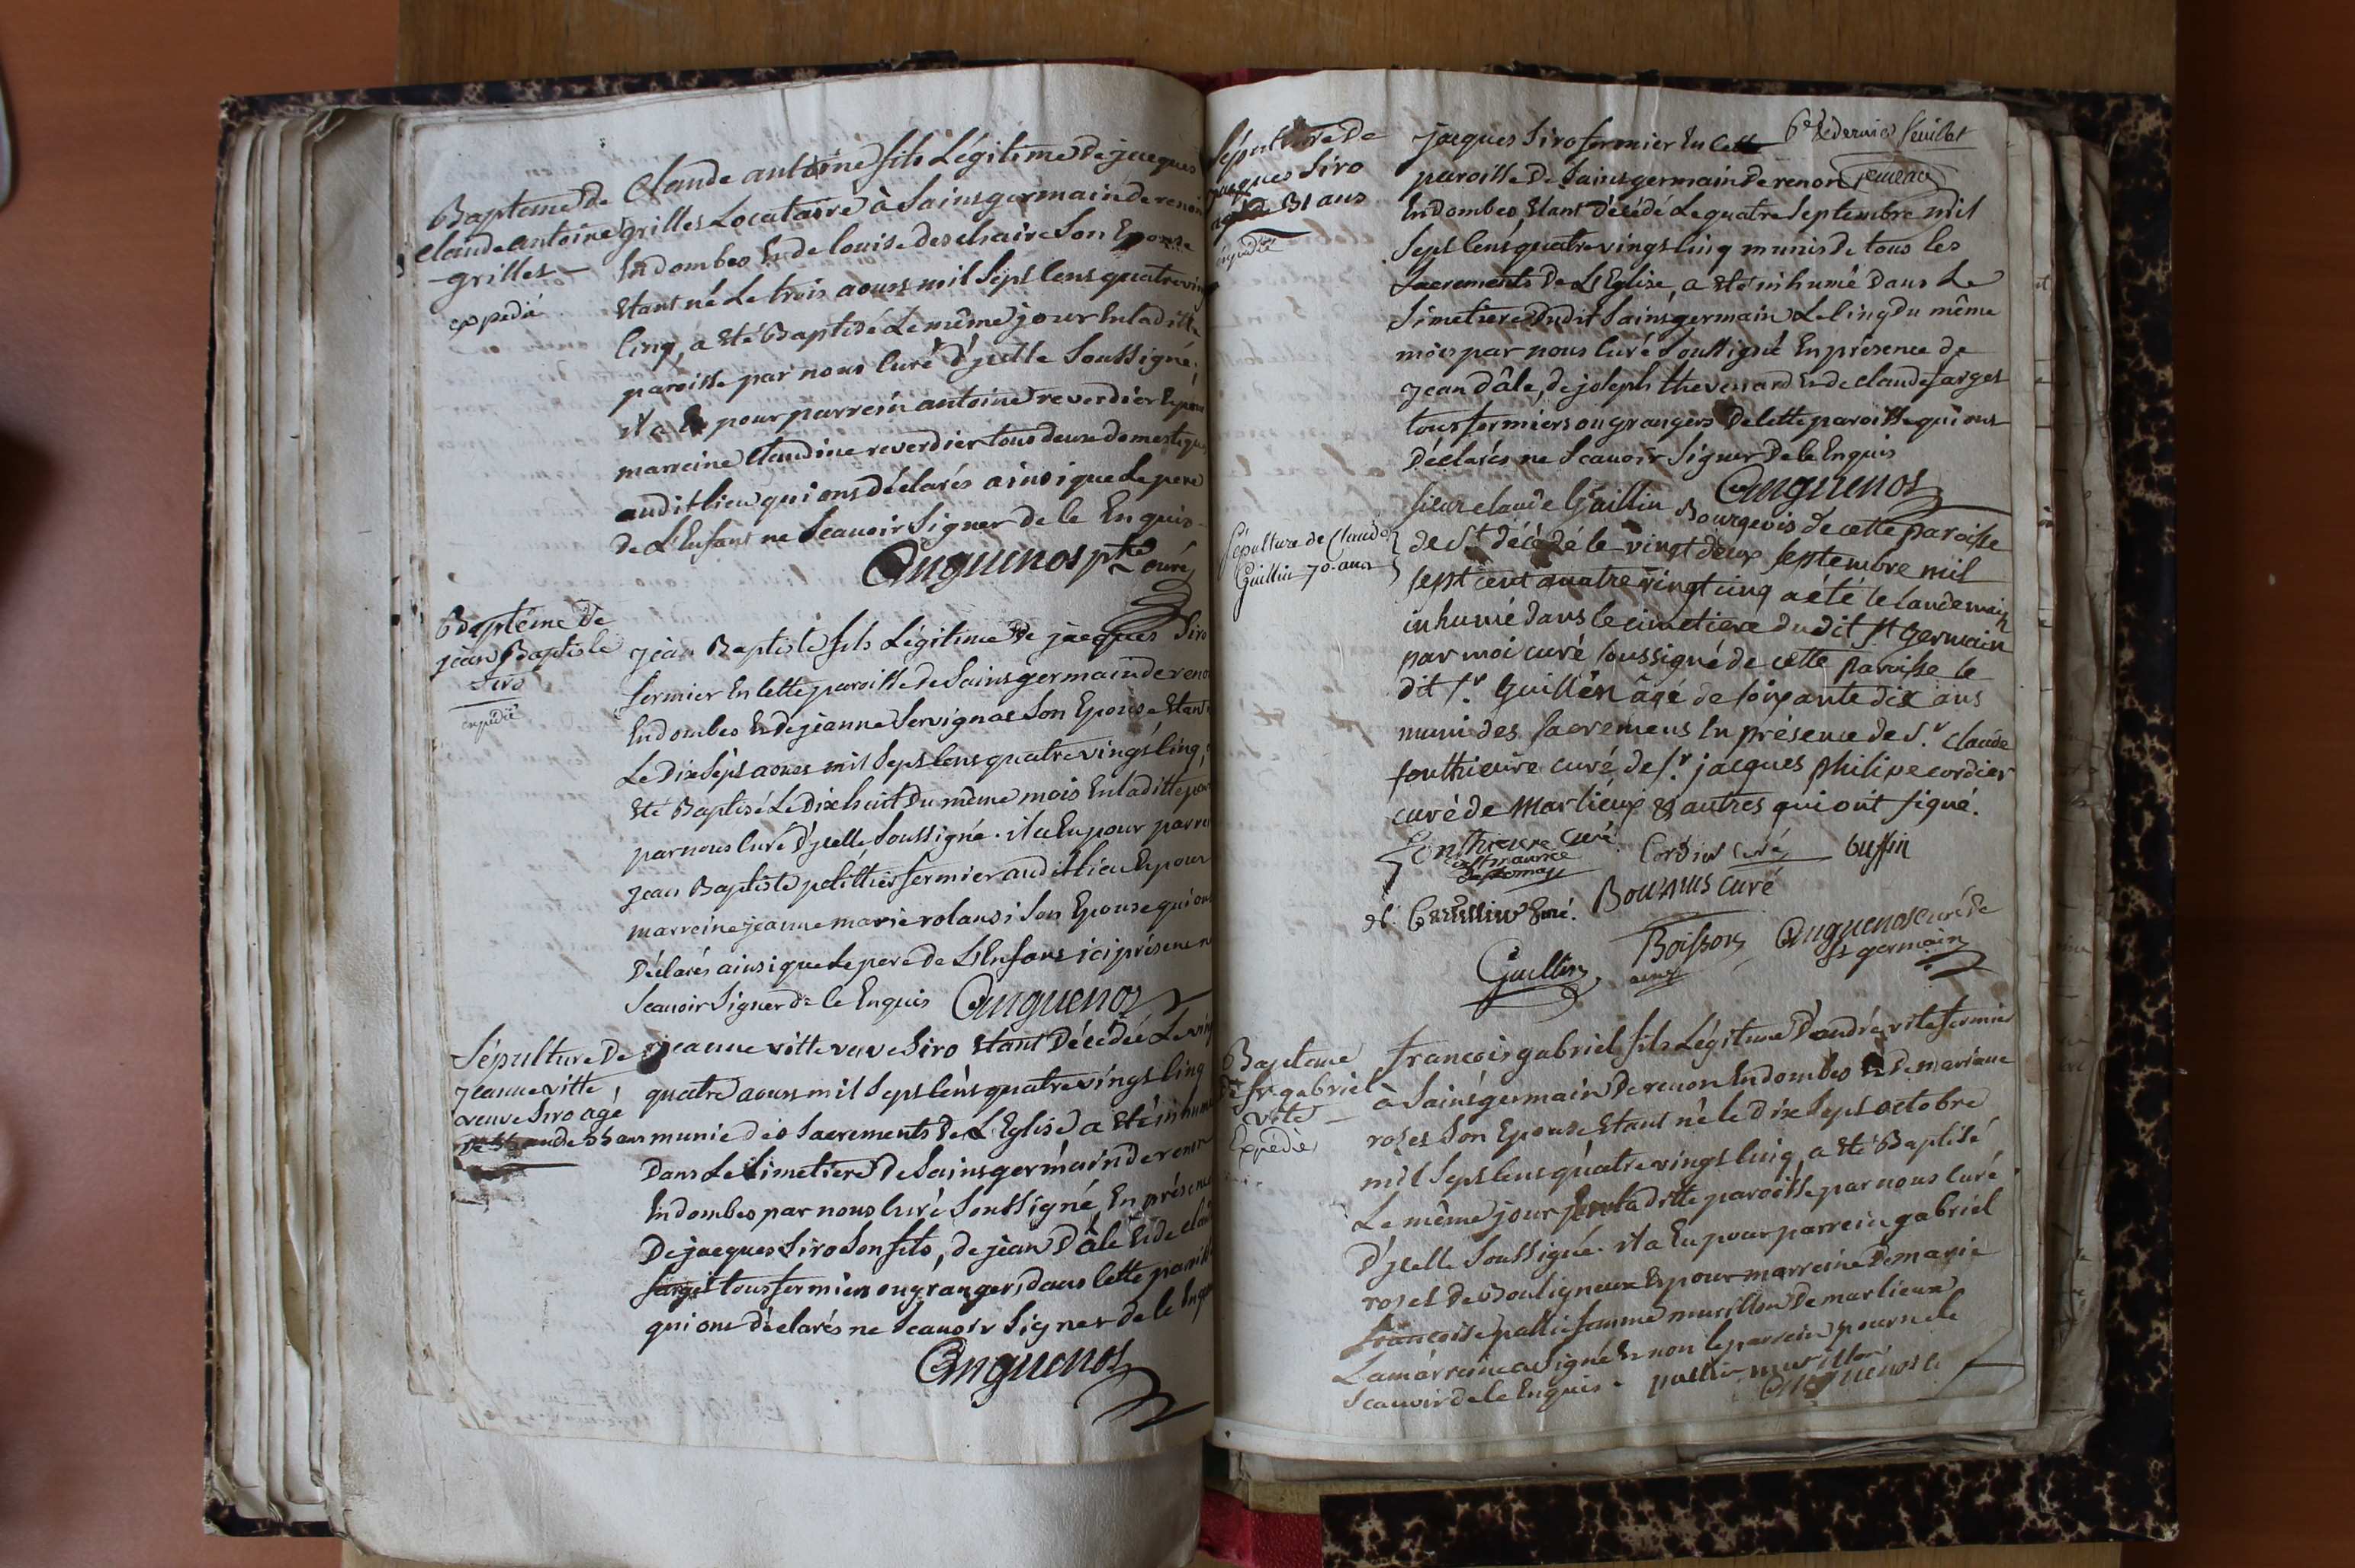 Bapteme De
Claude antoine
grilles
expedié
Claude antoine fils Légitime De jacques
grilles Locataire à Saint germain de renon
En dombes Et de louise deschaire Son Epouse
Etant né Le trois aoust mil Sept Cens quatre ving
Cinq, a été Baptisé Le même jour En la ditte
paroisse par nous Curé d'ycelle Soussigné,
il a Eu pour parrein antoine reverdier Et pour
marreine Claudine reverdier tous deux domestiques
audit lieu qui ont déclarés ainsi que Le pere
de L'Enfant ne Scauoir Signer de Ce Enquis
Anguenos ptre Curé
Baptême De
jean Baptiste
Siro
expedié
jean Baptiste fils Légitime De jacques Siro
fermier En Cette paroisse de Saint germain de renon
En dombes Et de jeanne Servignat Son Epouse Etant
Le Dix Sept aoust mil Sept Cens quatre vingt Cinq,
Eté Baptisé Le Dix huit Du même mois En la ditte par
par nous Curé D'ycelle Soussigné. il a Eu pour parrei
jean Baptiste pelittier fermier audit lieu Et pour
marreine jeanne marie rolans Son Epouse qui ont
Déclarés ainsi que Le pere de L'Enfant ici présent n
Scauoir Signer de Ce Enquis Anguenos
Sépulture De
jeanne vitte
veuve Siro agé
de 55 ans
jeanne vitte veuve Siro Etant Décédée Le vin
quatre aoust mil Sept Cens quatre vingt Cinq
munie des Sacrements De L'Eglise a Eté inhum
Dans Le Simetiere De Saint germain de renon
En dombes par nous Curé Soussigné En présence
De jacques Siro Son fils, de jean Dâle Et de clau
farget tous fermiers ou grangers dans Cette paroiss
qui ont déclarés ne Scauoir Signer de Ce Enqui
Anguenos
6e Et dernier feuillet
Sépulture De
jacques Siro
agé de 31 ans
expedié
jacques Siro fermier En Cette
paroisse De Saint germain de renon
En dombes Etant Décédé Le quatre Septembre mil
Sept Cens quatre vingt Cinq munis De tous les
Sacrements De L'Eglise, a Eté inhumé Dans Le
Simetiere Dudit Saint germain Le Cinq Du même
mois par nous Curé Soussigné En présence de
jean Dâle, de joseph thevenard Et de claude farget
tous fermiers ou grangers De Cette paroisse qui ont
Déclarés ne Scauoir Signer De Ce Enquis
Anguenos
Sépulture de Claude
Guillin 70. ans
sieur claude Guillin Bourgeois de cette paroisse
de St décédé le vingt deux septembre mil
sept cent quatre vingt cinq a été le landemain
inhumé dans le cimetiere du dit St germain
par moi curé soussigné de cette paroisse le
dit sr. Guillin âgé de soixante dix ans
muni des sacremens En présence de S.r claude
fonthieure curé de s.r jacques philipe cordier
curé de Marlieux & autres qui ont signé.
fonthieure curé
de St maurice
Cordier curé buffin
Guillin Curé. Bournus curé
Guillin Boisson Anguenos curé de
St germain
Bapteme
De fr gabriel
vite
Expedié
francois gabriel fils Légitime D'andré vite fermier
à Saint germain De renon En dombes Et De mariane
roset Son Epouse Etant né le dix Sept octobre
mil Sept Cens quatre vingt Cinq, a Eté Baptisé
Le même jour En la ditte paroisse par nous Curé
D'ycelle Soussigné. il a Eu pour parrein gabriel
roset de Bouligneux Et pour marreine De marie
francoise pallie femme murillon De marlieux
La marreine a Signé Et non le parrein pour ne le
Scauoir de Ce Enquis. pallie murillon
Anguenos C